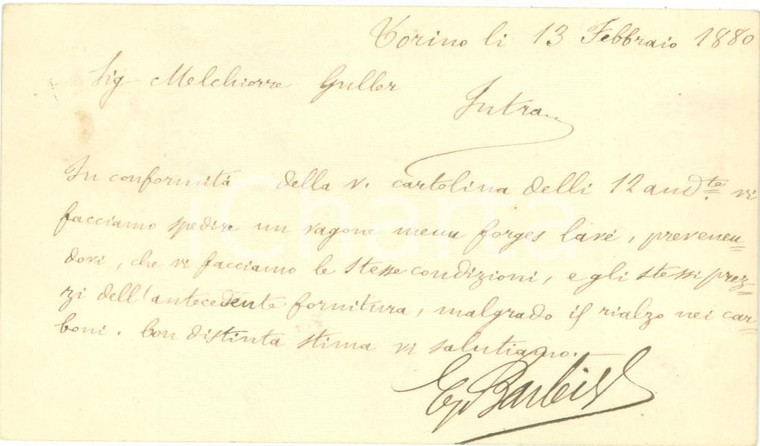 Torino li 13 Febbraio 1880
Sig Melchiorre Guller
Intra
In conformità della v. cartolina delli 12 andte. vi
facciamo spedire un vagone menu forges lavé, preveneu-
dovi, che vi facciamo le stesse condizioni, e gli stessi prez-
zi dell'antecedente fornitura, malgrado il rialzo nei car-
boni. Con distinta stima vi salutiamo.